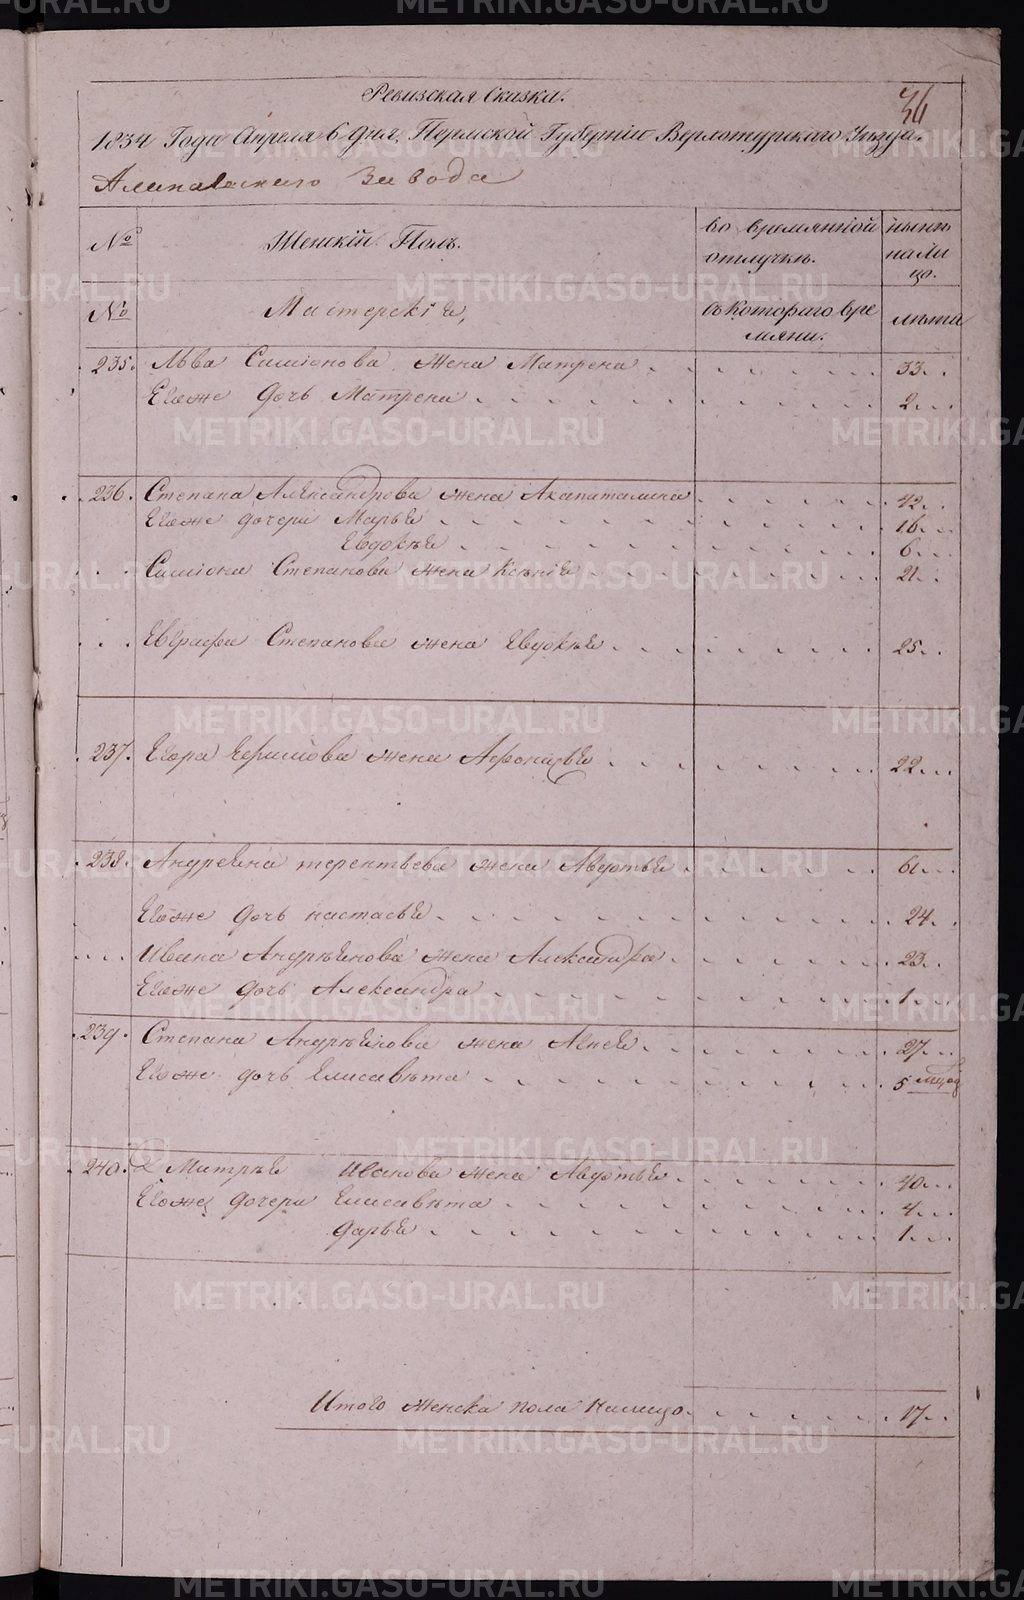 36
Ревизская Сказка.
1834 Года Апреля 6 дня, Пермской Губернїи Верхотурскаго Уѣзда.
Алапаевскаго Завода
№ Женскїй Полъ. во времянной отлучкѣ. нынѣ на лицо.
№ Мастерскїе, съ котораго времяни. лѣта
235. Льва Симïонова жена Матрена 33.
Егоже дочь Матрена 2.
236. Степана Александрова жена Акапаталина 42.
Егоже дочери Марья 16.
Евдокѣя 6.
Симïона Степанова жена Ксѣнїя 21.
Евграфа Степанова жена Евдокѣя 25.
237. Егора Ефимова жена Афонасья 22.
238. Андреяна терентьева жена Авдотья 61.
Егоже дочь настасья 24.
Ивана Андрѣянова жена Александра 23.
Егоже дочь Александра 1.
239. Степана Андрѣянова жена Агнея 27.
Егоже дочь Елисавѣта 5 мцов
240. Митрѣя Иванова жена Авдотья 40.
Егоже дочери Елисавѣта 4.
дарья 1.
Итого женска пола Налицо. 17.
METRIKI.GASO-URAL.RU